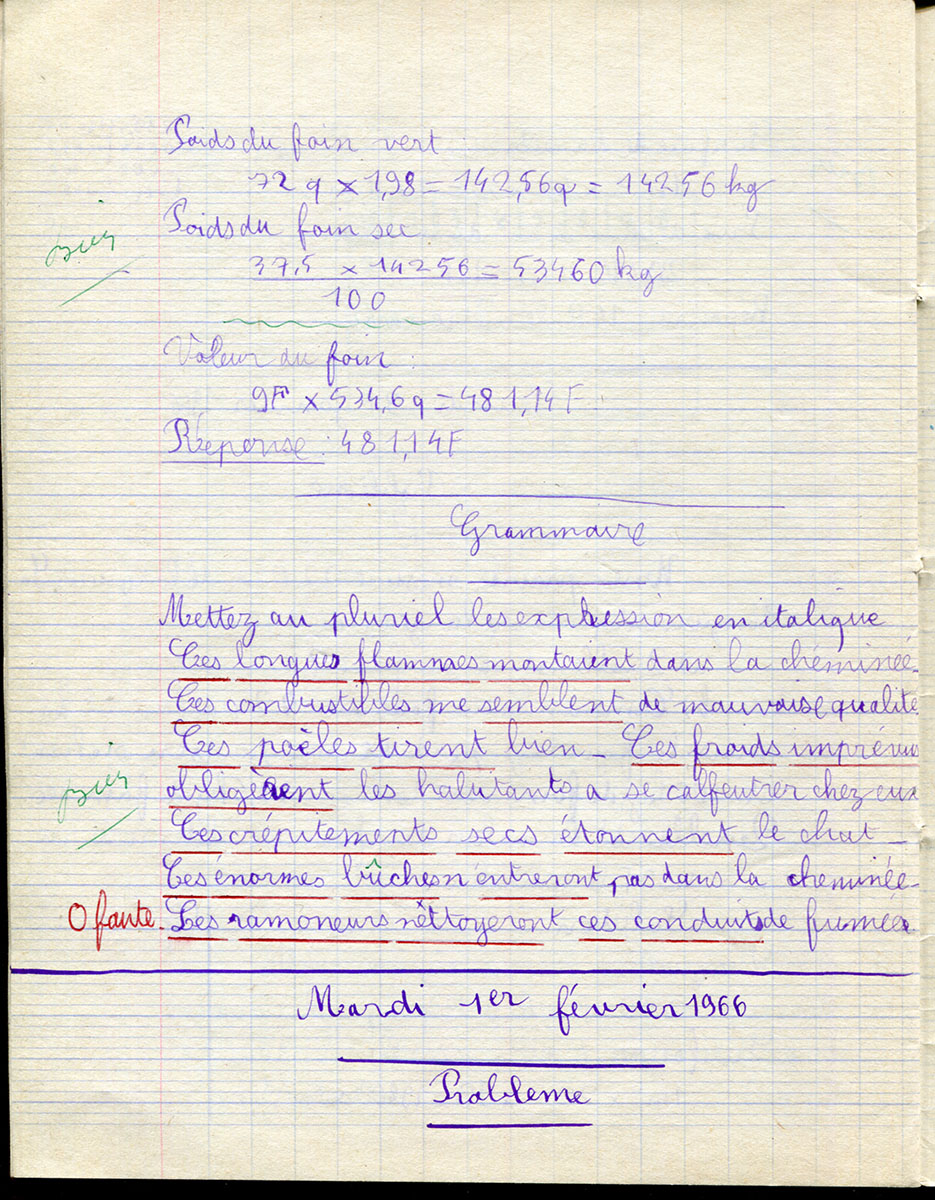 Poids du foin vert
72 q x 1,98 = 142,56q = 14256 kg
Poids du foin sec
bien
37,5 x 14256 = 53460 kg
100
Valeur du foin :
9F x 534,6q = 481,14F.
Réponse : 481,14F
Grammaire
Mettez au pluriel les expression en italique
Ces longues flammes montaient dans la cheminée.
Ces combustibles me semblent de mauvaise qualité
Ces poêles tirent bien - Ces froids imprévus
bien
obligèrent les habitants a se calfeutrer chez eux
Ces crépitements secs étonnent le chat -
Ces énormes bûches n'entreront pas dans la cheminée.
0 faute. Les ramoneurs nettoyeront ces conduits de fumée
Mardi 1er février 1966
Probleme